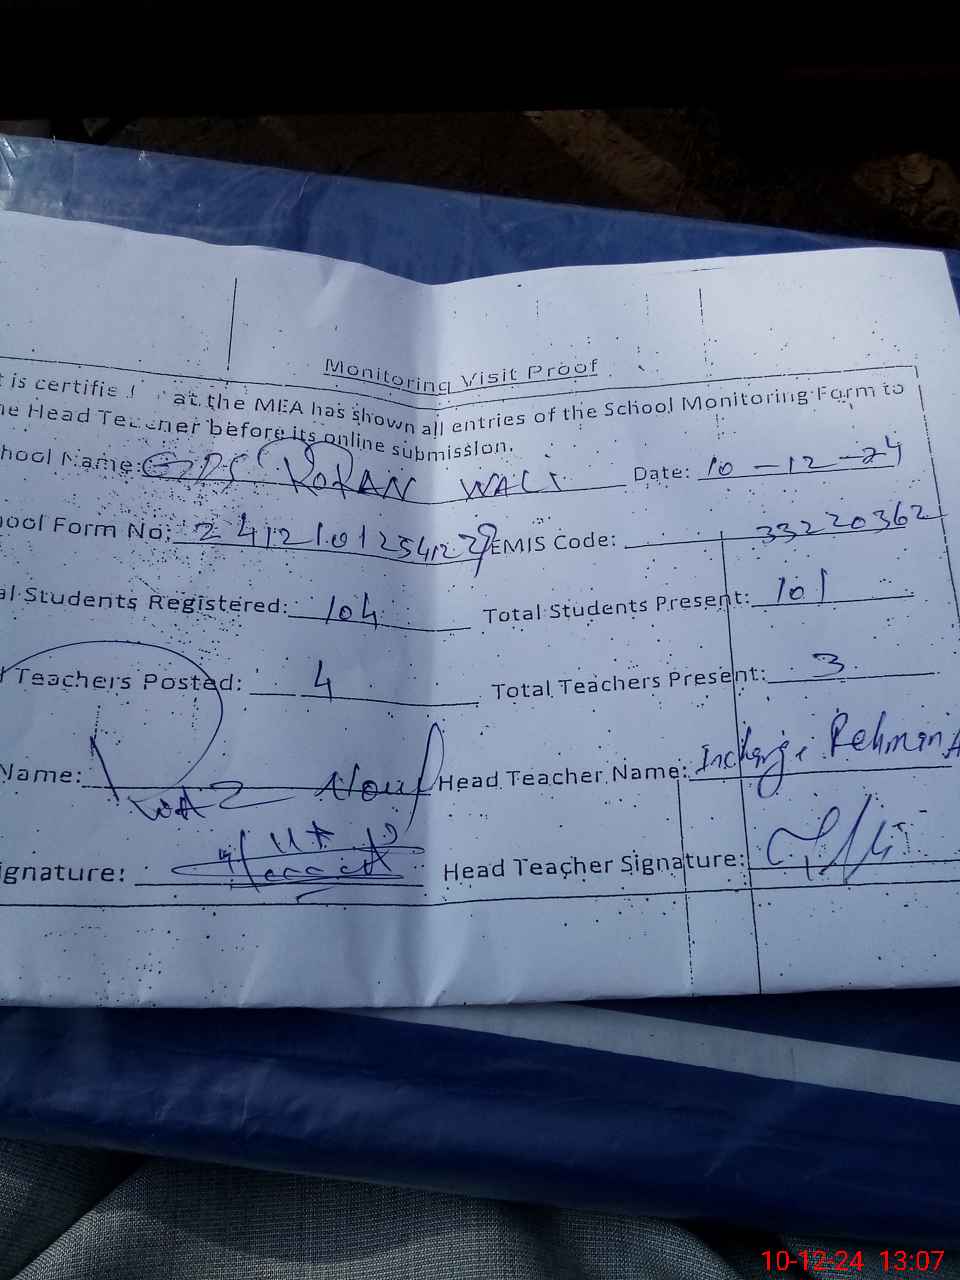 Monitoring Visit Proof
t is certifie at the MEA has shown all entries of the School Monitoring Form to
he Head Teacher before its online submission.
hool Name: GPS ROKAN WALI Date: 10-12-24
hool Form No: EMIS Code: 33220362
al Students Registered: 104 Total Students Present: 101
Teachers Posted: 4 Total Teachers Present: 3
Name: Head Teacher Name: Incharge Rehman A
ignature: Head Teacher Signature:
10-12-24 13:07